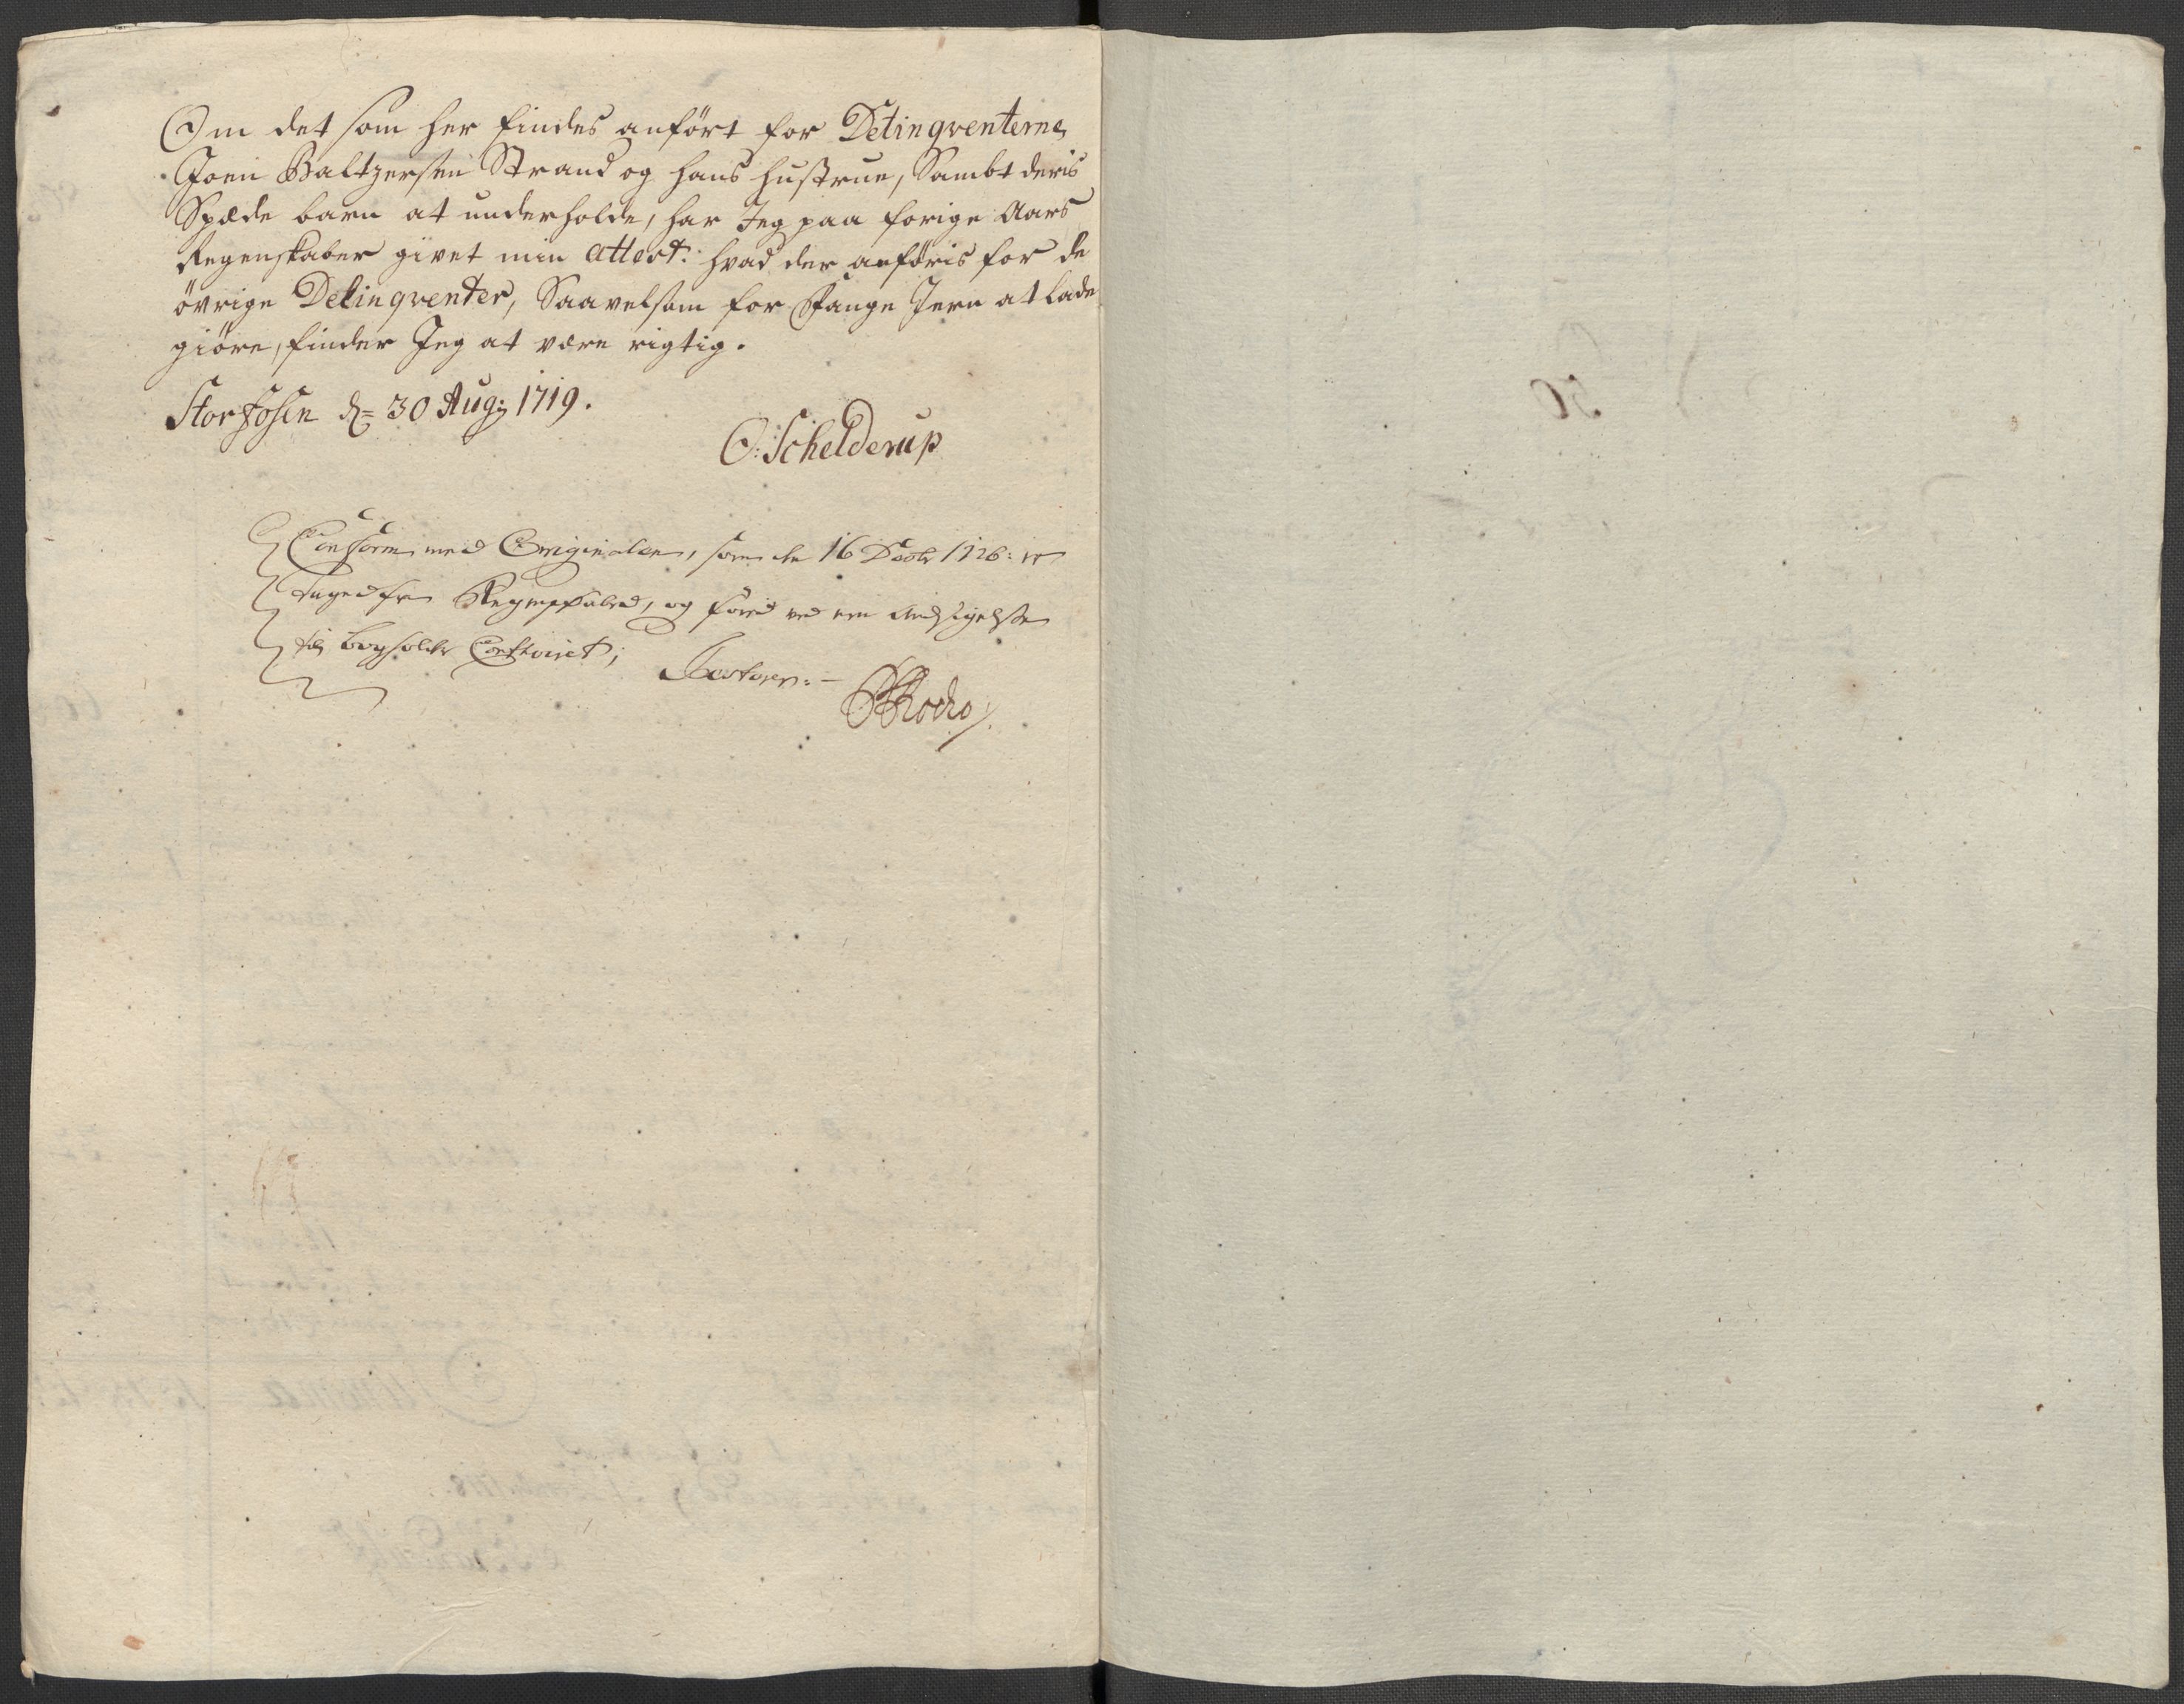 Om det som her findes anført for Delinqventerne
Joen Baltzersen Strand og hans hustrue, Sambt deris
Spæde barn at underholde, har Jeg paa forige Aars
Regenskaber givet min attest: hvad der anføris for de
øvrige Delinqventer, Saavelsom for Fange Jern at lade
giøre, finder Jeg at være rigtig.
Storfosen d= 30 Aug: 1719.
O: Schelderup
Conform med Originalen, som den 16 Decbr 1726: er
taged fra Regenskabed, og med een
til bogholder Contoiret;
Testerer:-